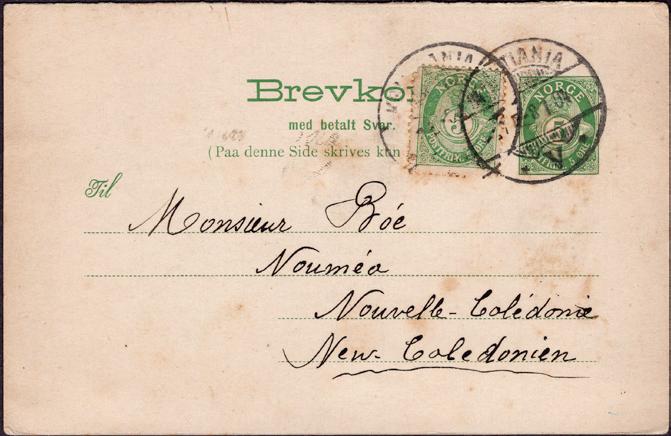 Brevko
med betalt Svar.
(Paa denne Side skrives kun
NORGE
5
NORGE
5
Til
Monsieur Bóe
Nouméa
Nouvelle-Calédonie
New-Caledonien